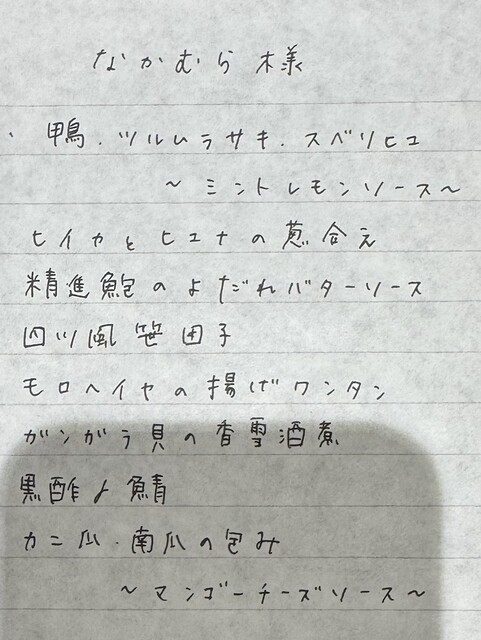 なかむら様
・鴨.ツルムラサキ.スベリヒユ
～ミントレモンソース～
ヒイカとヒユナの葱合え
精進鮑のよだれバターソース
四ツ風笹田子
モロヘイヤの揚げワンタン
ガンガラ貝の香雪酒煮
黒酢よ鯖
カニ爪.南瓜の包み
～マンゴーチーズソース～